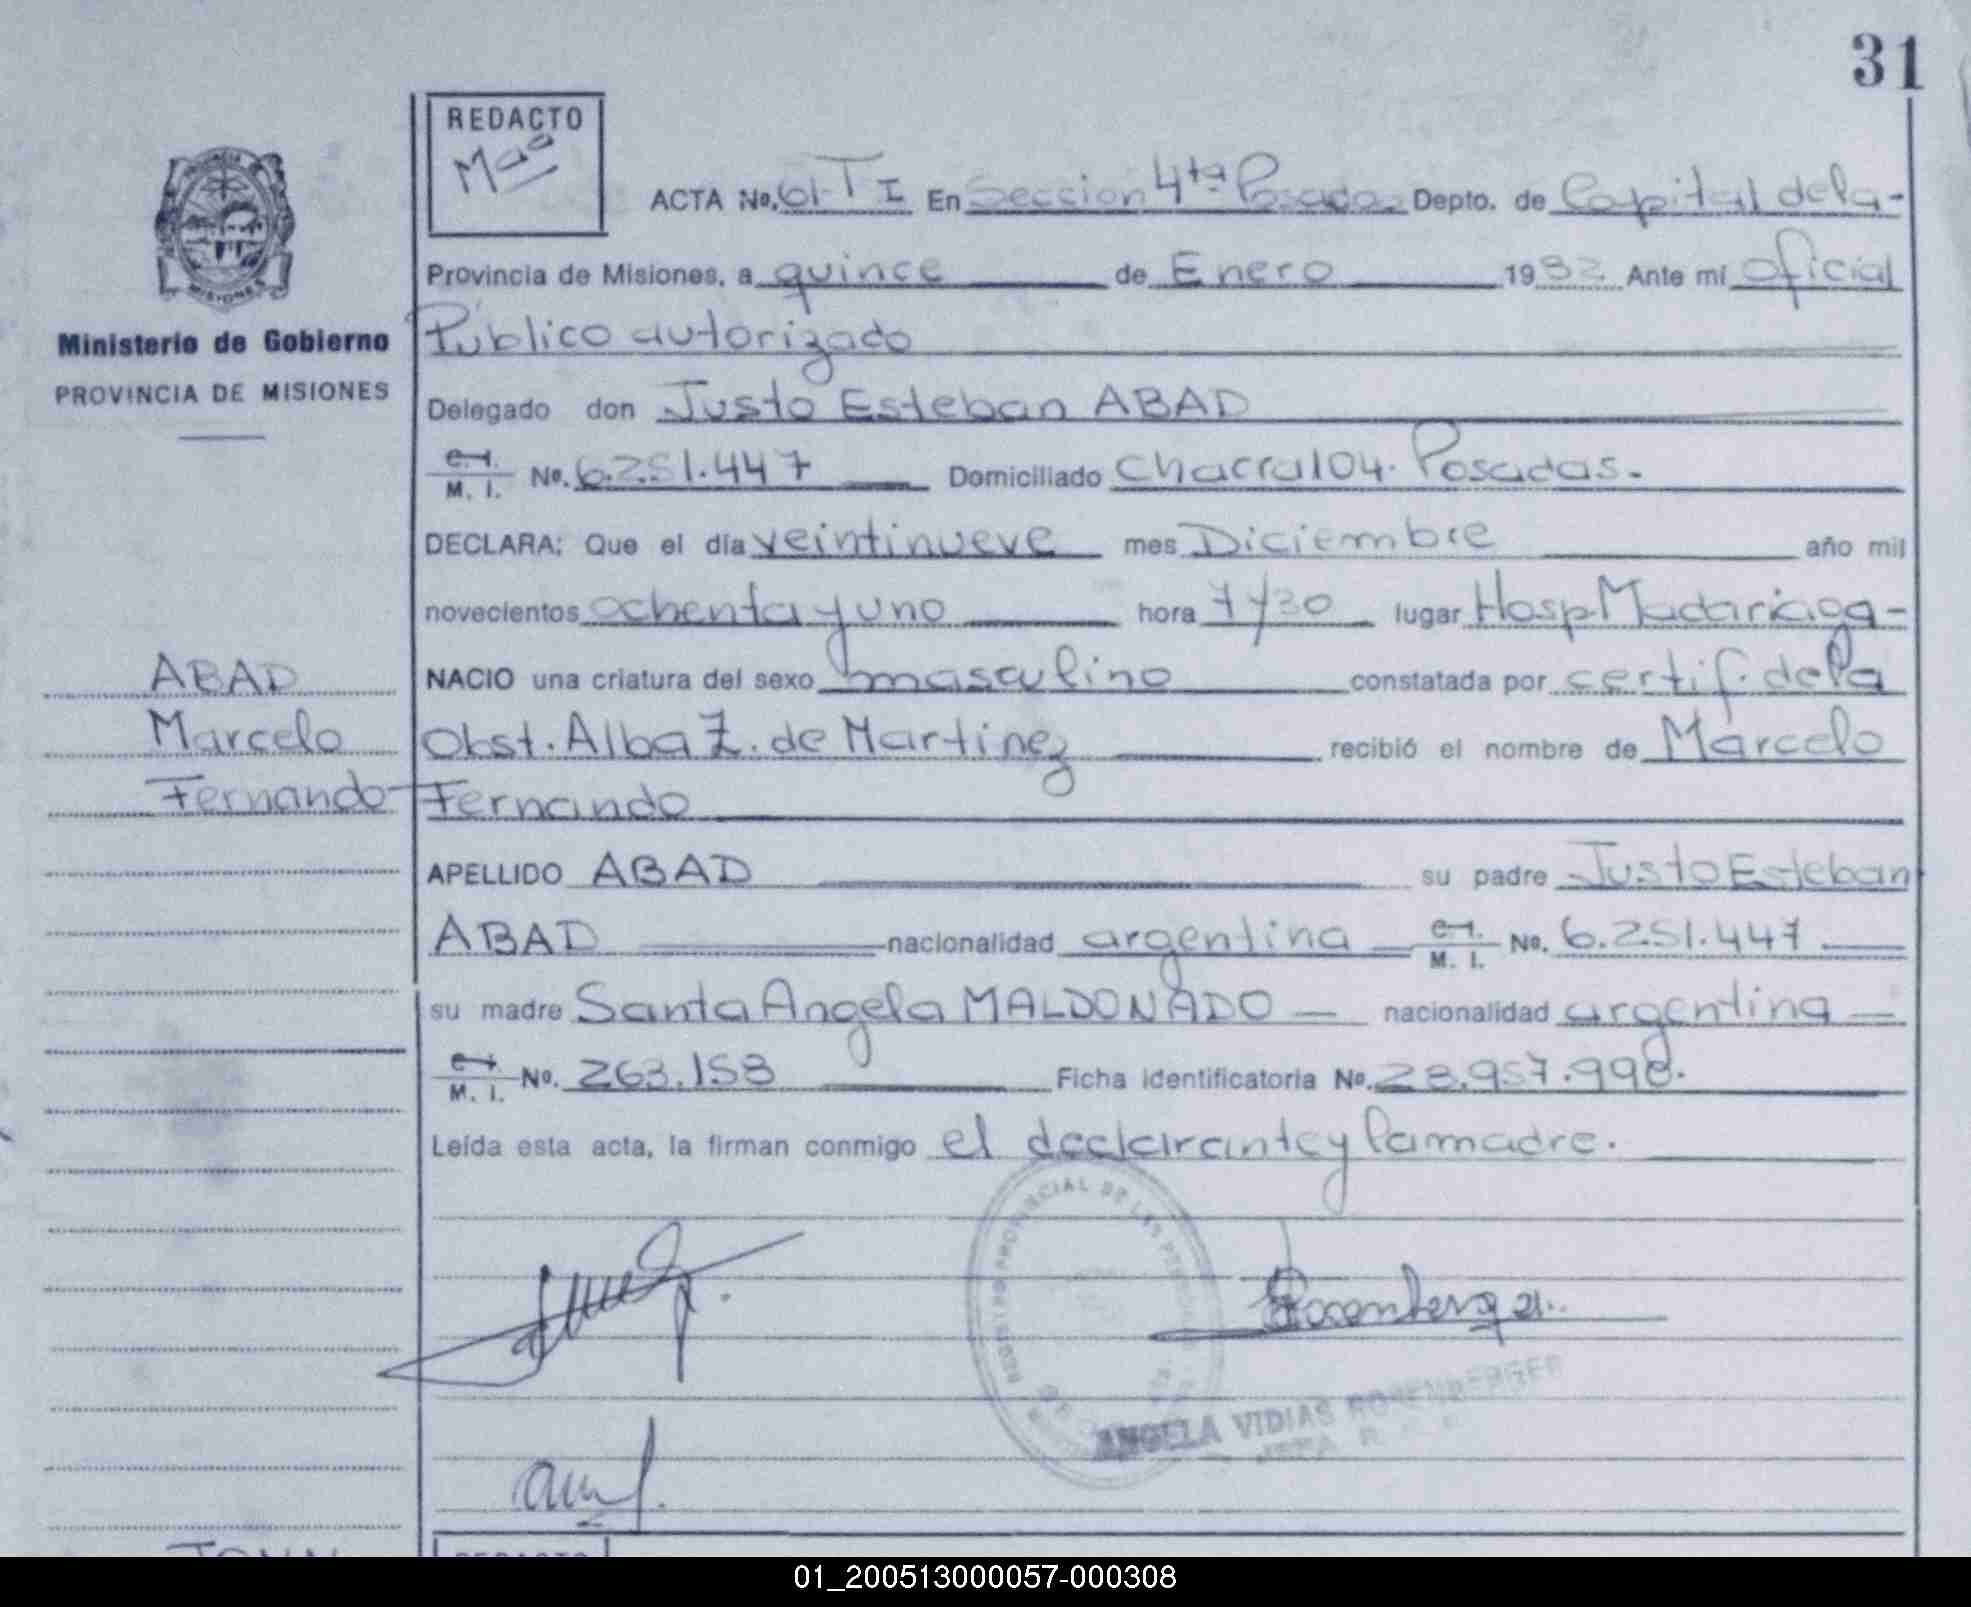 31
REDACTO
ACTA No. 61-T I En Sección 4ta Posadas Depto. de Capital de la-
Provincia de Misiones, a quince de Enero 1982 Ante mi oficial
Público autorizado
Ministerio de Gobierno
PROVINCIA DE MISIONES
Delegado don Justo Esteban ABAD
M. I. No. 6.251.447 Domiciliado Chacra 104. Posadas.
DECLARA: Que el día veintinueve mes Diciembre año mil
novecientos ochenta y uno hora 7 y 30 lugar Hosp Madariaga-
ABAD
Marcelo
Fernando
NACIO una criatura del sexo masculino constatada por certif. de la
Obst. Alba Z. de Martinez recibió el nombre de Marcelo
Fernando
APELLIDO ABAD su padre Justo Esteban
ABAD nacionalidad argentina M. I. No. 6.251.447
su madre Santa Angela MALDONADO nacionalidad argentina
M. I. No. 263.158 Ficha identificatoria No. 28.957.998.
Leída esta acta, la firman conmigo el declarante y la madre.
ANGELA VIDIAS ROSENBERGER
REDACTO
01_200513000057-000308